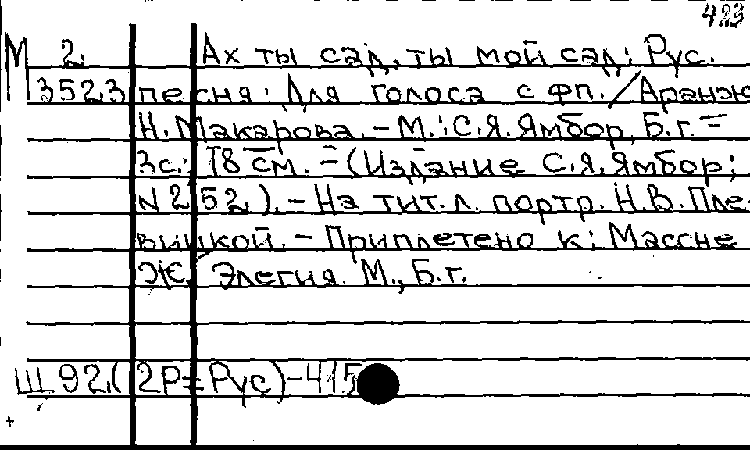 423
М 2. Ах ты сад, ты мой сад: Рус.
3523 песня: Для голоса с фп. / Аранж
Н. Макарова. - М.: С.Я. Ямбор, Б.г. -
3с.; 18 см. - (Издание С.Я. Ямбор;
N 252). - На тит.л. портр. Н.В. Пле-
вицкой. - Приплетено к: Массне
Ж. Элегия. М., Б.г.
Щ92.(2Р=Рус)-415